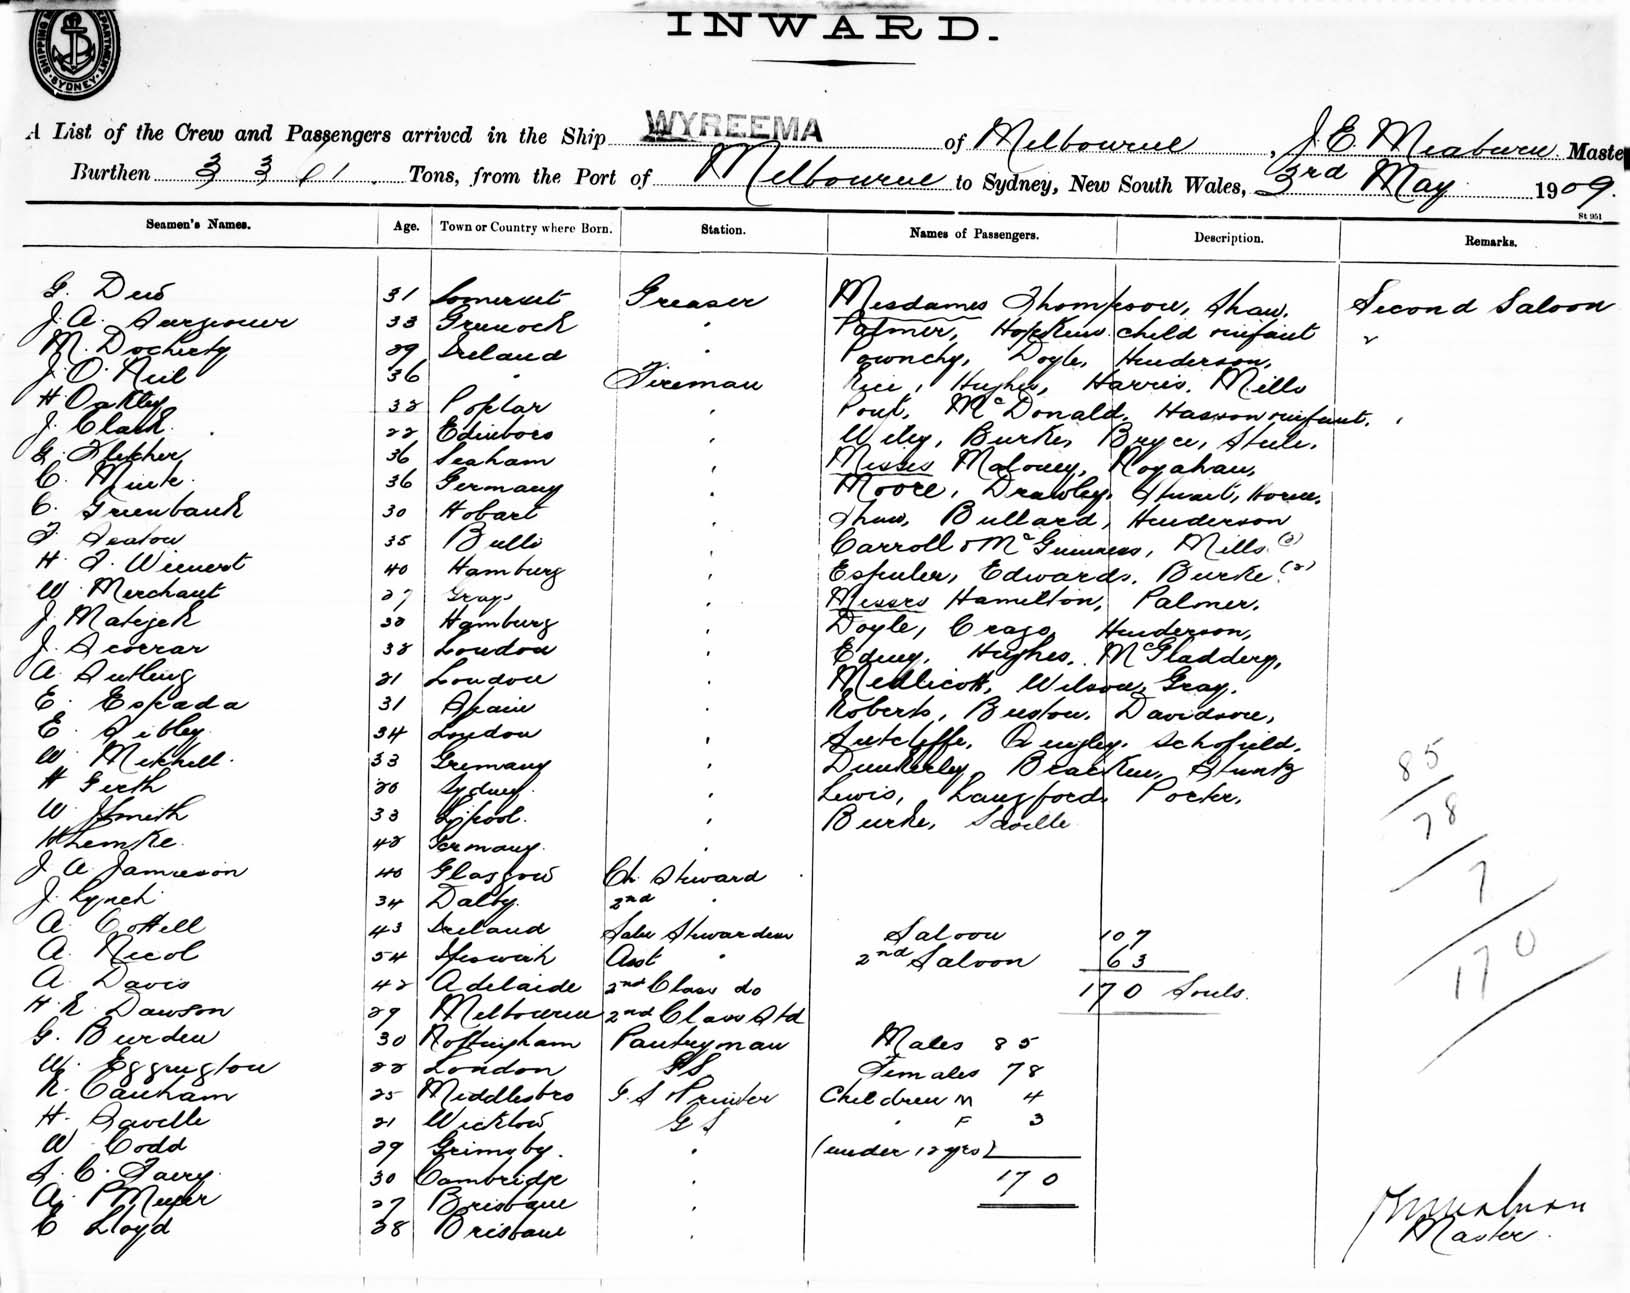 SHIPPING DEPARTMENT. SYDNEY
INWARD.
A List of the Crew and Passengers arrived in the Ship WYREEMA of Melbourne, J. E. Meaburn Maste
Burthen 3 3 61 Tons, from the Port of Melbourne to Sydney, New South Wales, 3rd May 1909.
St 951
Seamen's Names. Age. Town or Country where Born. Station. Names of Passengers. Description. Remarks.
G. 31 Somerset Greaser Mesdames Thompson, Shaw, Second Saloon
J. A. 33 Greenock Palmer, Hopkins child infant
M. Docherty 29 Ireland Doyle, Henderson,
J. O. Neil 36 Fireman Rice, Hughes, Harris, Mills
H Oakley 32 Poplar McDonald,
J. Clark. 22 Edinboro Wiley, Burke, Bryce, Steele,
G. Fletcher 36 Seaham Misses Maloney,
C. 36 Germany Moore, Drawley, Stuart, Horne,
C. Greenbank 30 Hobart Shaw, Bullard, Henderson
F. Seaton 35 Bulli Carroll & McGuinness, Mills (2)
H. F. Wienert 40 Hamburg Edwards, Burke (2)
W. Merchant 27 Grays Messrs Hamilton, Palmer,
J. Matejek 38 Hamburg Doyle, Crago, Henderson,
J. 32 London Edney, Hughes, McGladdery,
A. 21 London Medlicott, Wilson, Gray,
E. Espada 31 Spain Roberts, Davidson,
E. Sibley 34 London Sutcliffe, Quigley, Schofield,
W. Mitchell. 33 Germany Dunkerley, Bracken, Stuntz
H Gerth 20 Sydney. Lewis, Langford, Porter,
W. Smith 33 L'pool. Burke, Saville
H Lemke. 42 Germany.
J. A. Jamieson 40 Glasgow Ch. Steward
J. Lynch 34 Dalby. 2nd
A. Cottell 43 Ireland Stewardess Saloon 107
A. Nicol 54 Ipswich Asst 2nd Saloon 63
A. Davis 42 Adelaide 2nd Class do 170 Souls.
H. E. Dawson 29 Melbourne 2nd Class Std
G. Burden 30 Nottingham Pantryman Males 85
W. Eggington 22 London GS Females 78
R. Canham 25 Middlesbro G.S Printer Children M 4
H. Savelle 21 Wicklow G S F 3
W. Codd 29 Grimsby. (under 12 yrs)
C. 30 Cambridge 170
A. P Meyer 27 Brisbane
E Lloyd 28 Brisbane
85
78
7
170
Meaburn
Master.